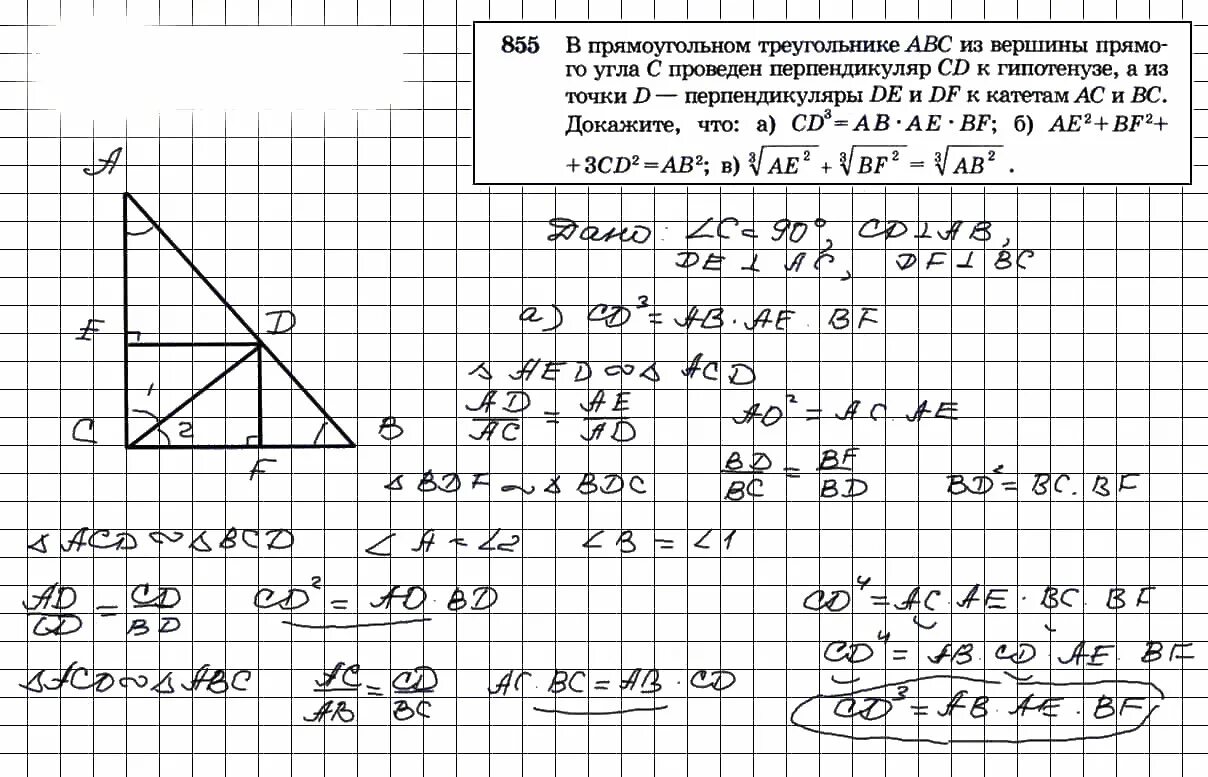 855 В прямоугольном треугольнике ABC из вершины прямо-
го угла C проведен перпендикуляр CD к гипотенузе, а из
точки D — перпендикуляры DE и DF к катетам AC и BC.
Докажите, что: а) CD³ = AB · AE · BF; б) AE² + BF² +
+ 3CD² = AB²; в) ∛AE² + ∛BF² = ∛AB² .
A
E
D
1
C
2
B
F
Дано: ∠C = 90°, CD ⊥ AB,
DE ⊥ AC, DF ⊥ BC
а) CD³ = AB · AE · BF
△ AED ∾ △ ACD
AD/AC = AE/AD AD² = AC · AE
△ BDF ∾ △ BDC BD/BC = BF/BD BD² = BC · BF
△ ACD ∾ △ BCD ∠A = ∠2 ∠B = ∠1
AD/CD = CD/BD CD² = AD · BD CD⁴ = AC · AE · BC · BF
CD⁴ = AB · CD · AE · BF
△ ACD ∾ △ ABC AC/AB = CD/BC AC · BC = AB · CD
CD³ = AB · AE · BF